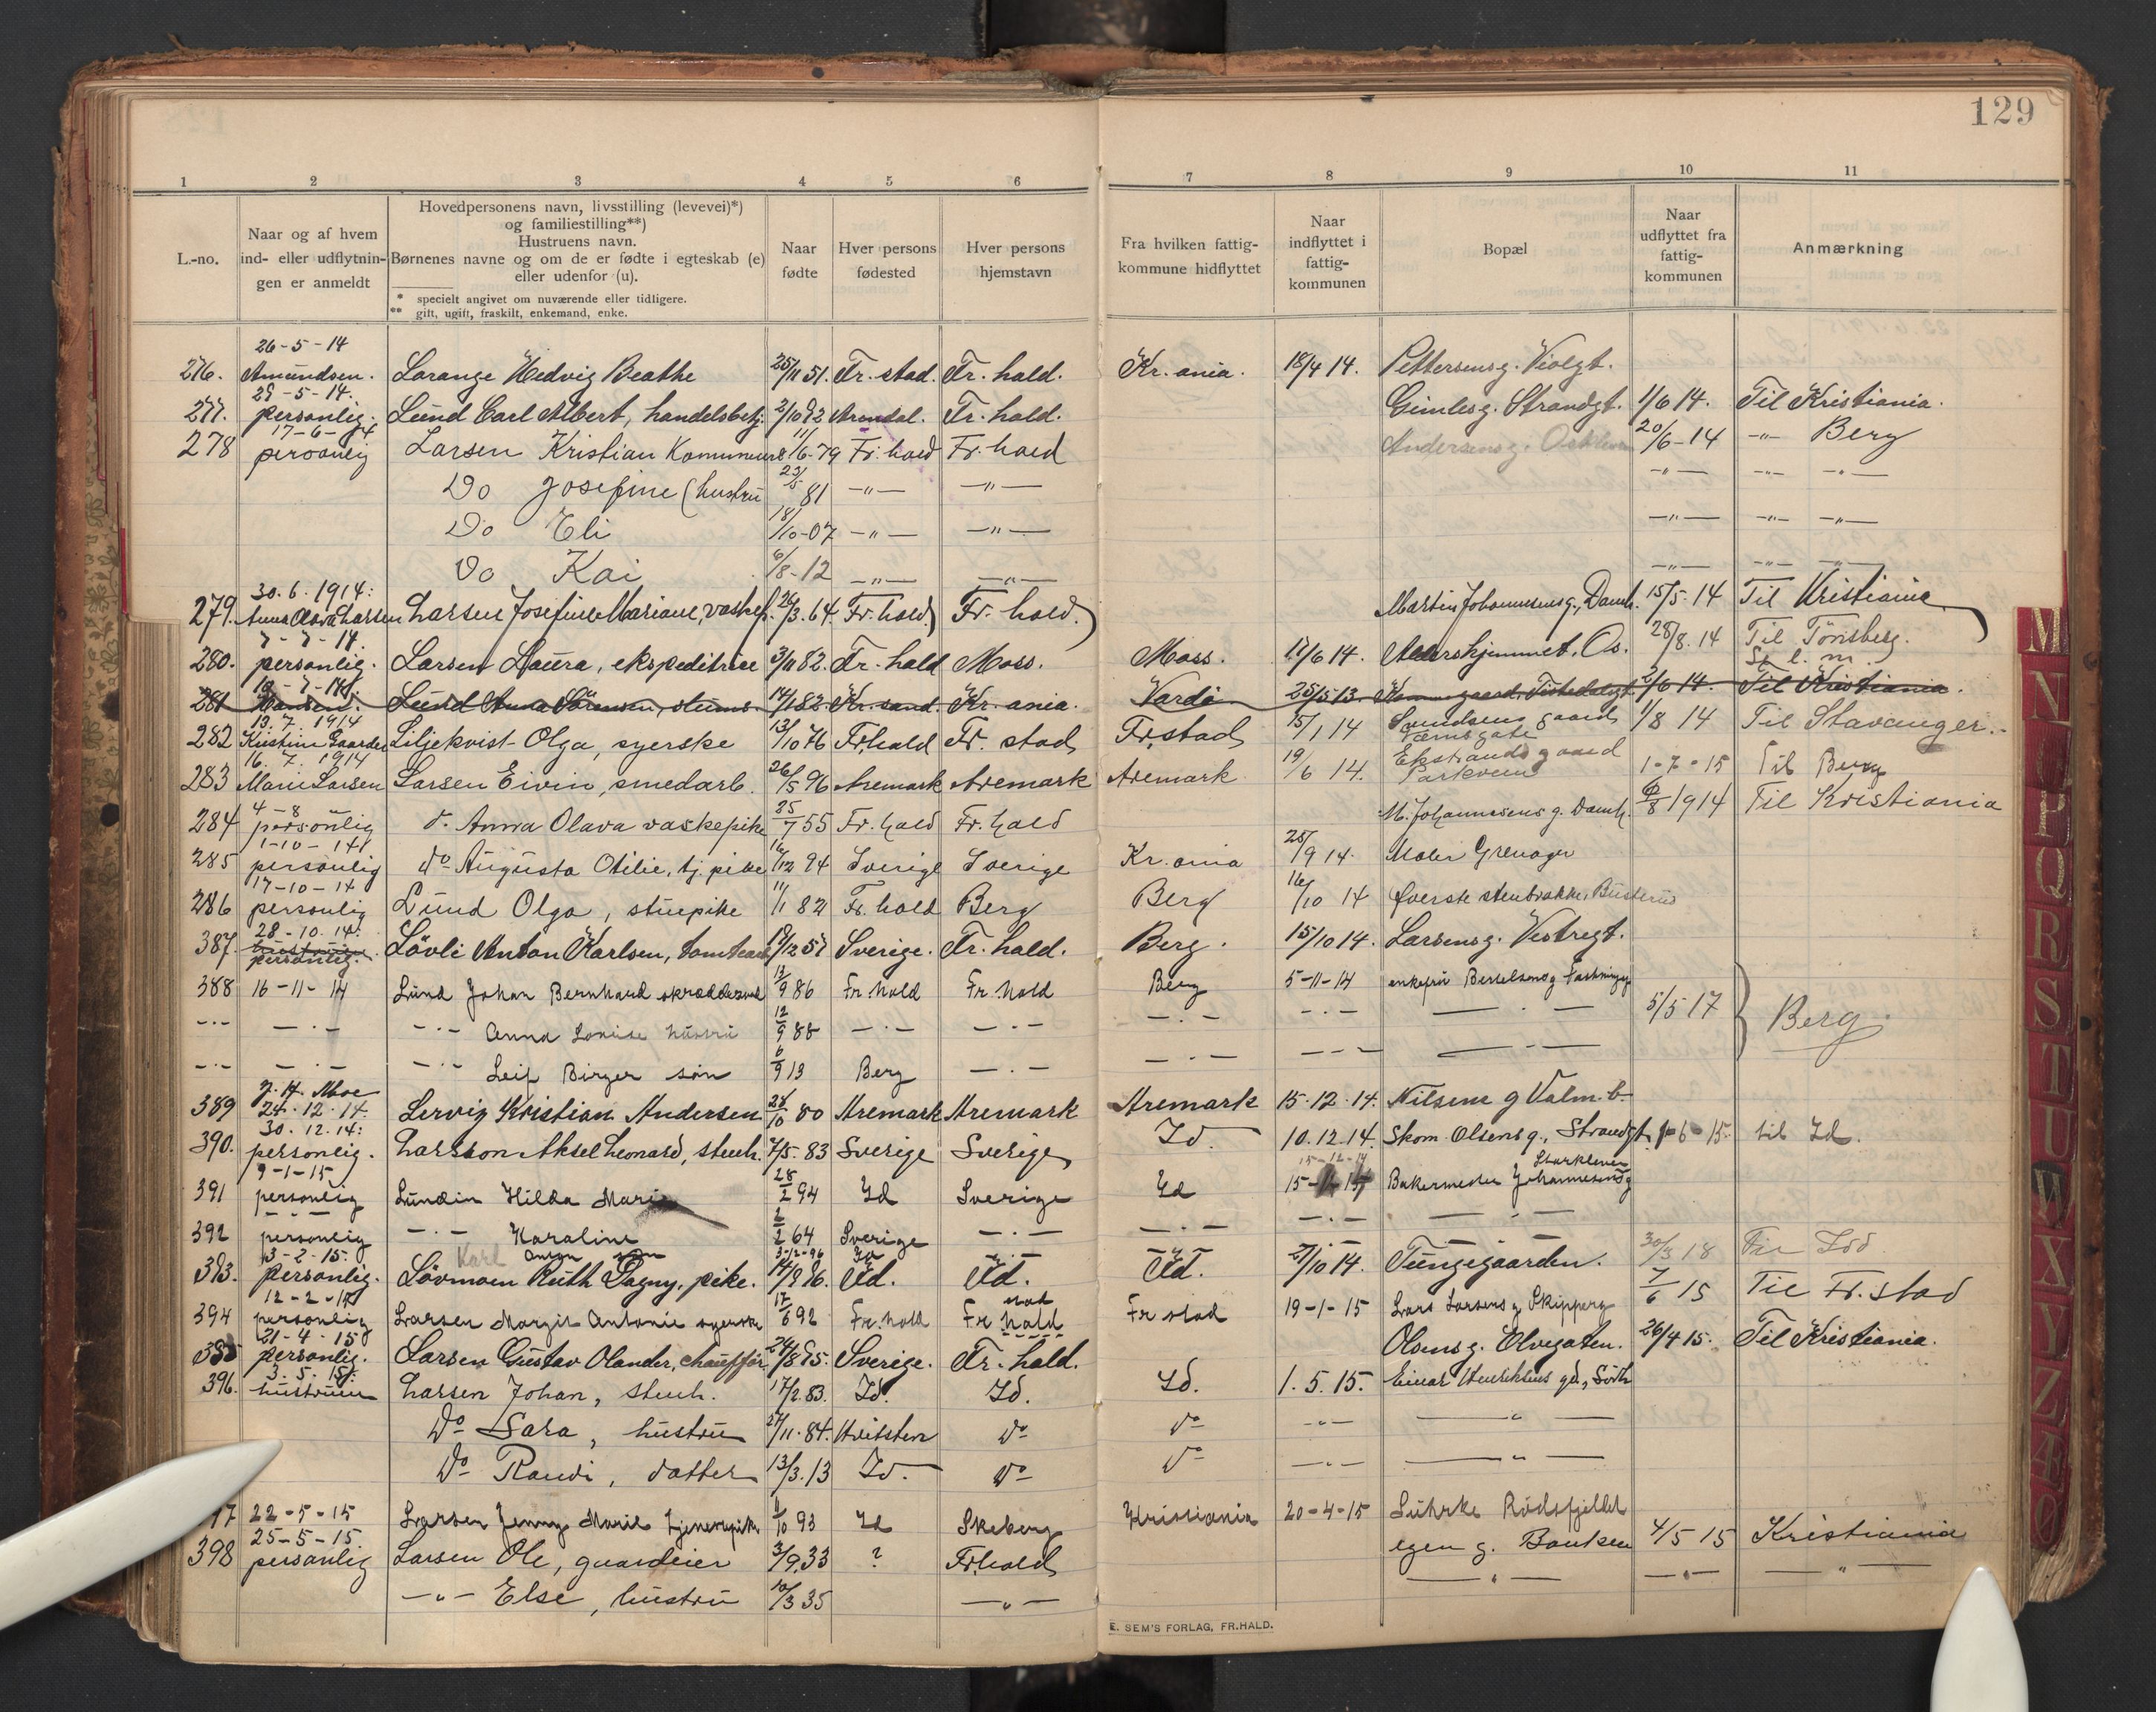 129
1 2 3 4 5 6 7 8 9 10 11
L.-no.
Naar og af hvem ind- eller udflytnin-gen er anmeldt
Hovedpersonens navn, livsstilling (levevei)*)
og familiestilling**)
Hustruens navn.
Børnenes navne og om de er fødte i egteskab (e)
eller udenfor (u).
* specielt angivet om nuværende eller tidligere.
** gift, ugift, fraskilt, enkemand, enke.
Naar fødte
Hver persons fødested
Hver persons hjemstavn
Fra hvilken fattig-kommune hidflyttet
Naar indflyttet i fattig-kommunen
Bopæl
Naar udflyttet fra fattig-kommunen
Anmærkning
26-5-14
276. Amundsen. Lorange Hedvig Beathe 25/11 51. Fr.stad. Fr.hald. Kr.ania. 18/4 14. Pettersensg. Violgt.
29-5-14.
277. personlig. Lund Carl Albert, handelsbetj. 2/10 92 Arendal. Fr.hald. Gimlesg. Strandgt. 1/6 14. Til Kristiania.
17-6-14
278 personlig Larsen Kristian 11/6-79 Fr.hald Fr.hald Andersensg. 20/6-14 -"- Berg
Do Josefine (hustru 23/5 81 -"- -"- -"- -"- -"-
Do Eli 18/10-07 -"- -"- -"- -"- -"-
Do Kai 6/8-12 -"- -"- -"- -"- -"-
30.6.1914:
279. Anna Olava Larsen Larsen Josefine Mariane, vaskep. 26/3.64. Fr.hald. Fr.hald. Martin Johannesensg., Damh. 15/5-14 Til Kristiania
7-7-14.
280. personlig. Larsen Laura, ekspeditrice 3/11 82. Fr.hald Moss. Moss. 17/6 14. Aldershjemmet, Os. 28/8.14 Til Tönsberg.
Se l. m.
18-7-14
281 Hansen. Lund Anna Sörensen, stums. 14/1 82 Kr.sand. Kr.ania. Vardö 25/5 13. Tistedalsgt. 2/6 14. Til Kristiania.
13.7.1914
282 Kristine Gaarder Liljekvist Olga, syerske 13/10 76 Fr.hald Fr.stad Fr.stad 15/1 14 Svendsens gaard 1/8 14 Til Stavanger.
16.7.1914
283 Marie Larsen Larsen Eivin, smedarb. 26/5 96 Aremark Aremark Aremark 19/6 14. Ekstrands gaard
Parkveien 1-7-15 Til Berg
4-8
284 personlig d. Anna Olava vaskepike 25/7 55 Fr.hald Fr.hald M. Johannesens g. Damh. 6/8 1914 Til Kristiania
1-10-14
285 personlig do Augusta Otilie, tj.pike 16/12 94 Sverige Sverige Kr.ania 25/9 14. Maler Grenager
17-10-14
286 personlig Lund Olga, stuepike 11/1 82 Fr.hald Berg Berg 16/10 14 Øverste stenbrakke,
28-10.14:
387. personlig. Lövli Anton Karlsen, tomtearb. 19/12 57 Sverige. Fr.hald. Berg. 15/10 14. Larsensg. Vestregt.
388 16-11-14 Lund Johan Bernhard skrædder 13/9 86 Fr.hald Fr.hald Berg 5-11-14 enkefru 5/5 17 Berg.
-.- -.- -.- Anna Lovise hustru 12/9 88 -.- -.- -.- -.- -.-
-.- -.- -.- Leif Birger sön 6/9 13 Berg -.- -.- -.- -.-
J. H. Moe
389 24.12.14. Lervig Kristian Andersen 28/10 80 Aremark Aremark Aremark 15.12.14. Nilsens g Valm.b-
30.12.14:
390. personlig. Larsson Aksel Leonard, stenh. 7/5-83 Sverige Sverige Id. 10.12.14. Skom. Olsensg., Strandgt. 1-6-15 til Id.
9-1-15
15-12-14
391 personlig Lundin Hilda Marie 28/2 94 Id Sverige Id Bakermester Johannesens g
392 personlig -.- Karaline 2/2 64 Sverige -.- -.- -.- -.-
3-2-15. Karl Anton sön 3-12-96 Id
393. personlig. Lövmoen Ruth Dagny, pike. 14/9 96. Id. Id. Id. 27/10 14. Tungegaarden. 30/3 18
12-2-15
394 personlig Larsen Margit Antonie syerske 17/6 92 Fr.hald Fr hald
stad Fr stad 19-1-15 Lars Larsens g Skipperg 7/6 15 Til Fr.stad
21-4-15
395 personlig. Larsen Gustav Olander, chauffør 24/8 95. Sverige. Fr.hald. Olsensg. Elvegaten. 26/4 15. Til Kristiania.
3.5.15:
396. hustruen Larsen Johan, stenh. 17/2.83. Id. Id. Id. 1.5.15. Einar Henriksens gd.,
Do Sara, hustru 27/11.84. Hvitsten do do -"- -"-
Do Randi, datter 13/3.13 Id. do do -"- -"-
97 22-5-15 Larsen Jenny Marie tjenestepike 1/10 93 Id Skeberg Kristiania 20-4-15 Lührke Rødsfjeldet
25-5-15.
398 personlig Larsen Ole, gaardeier 3/9.33 ? Fr.hald egen g. Banken 4/5 15 Kristiania
-"- Else, hustru 10/3 35 -"- -"- -"- -"-
E. SEM'S FORLAG, FR.HALD.
M
N
P
Q
R
S
T
U
W
X
Y
Z
Æ
Ø